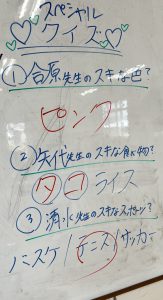 スペシャル
クイズ
① 合原先生のスキな色?
ピンク
② 矢代先生のスキな食べ物?
タコライス
③ 清水先生のスキなスポーツ?
バスケ/テニス/サッカー